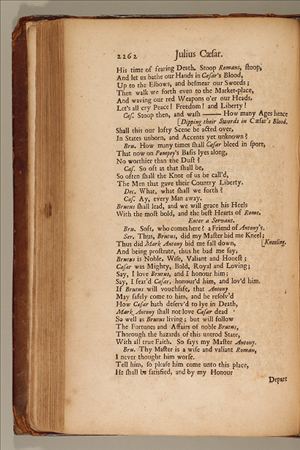 2262 Julius Cæsar.
His time of fearing Death. Stoop Romans, stoop,
And let us bathe our Hands in Cæsar's Blood,
Up to the Elbows, and besmear our Swords;
Then walk we forth even to the Market-place,
And waving our red Weapons o'er our Heads,
Let's all cry Peace! Freedom! and Liberty!
Cas. Stoop then, and wash —— How many Ages hence
[Dipping their Swords in Cæsar's Blood.
Shall this our lofty Scene be acted over,
In States unborn, and Accents yet unknown?
Bru. How many times shall Cæsar bleed in sport,
That now on Pompey's Basis lyes along,
No worthier than the Dust?
Cas. So oft as that shall be,
So often shall the Knot of us be call'd,
The Men that gave their Country Liberty.
Dec. What, what shall we forth?
Cas. Ay, every Man away.
Brutus shall lead, and we will grace his Heels
With the most bold, and the best Hearts of Rome.
Enter a Servant.
Bru. Soft, who comes here? a Friend of Antony's.
Ser. Thus, Brutus, did my Master bid me Kneel;
Thus did Mark Antony bid me fall down, [Kneeling.
And being prostrate, thus he bad me say.
Brutus is Noble, Wise, Valiant and Honest;
Cæsar was Mighty, Bold, Royal and Loving;
Say, I love Brutus, and I honour him;
Say, I fear'd Cæsar, honour'd him, and lov'd him.
If Brutus will vouchsafe, that Antony
May safely come to him, and be resolv'd
How Cæsar hath deserv'd to lye in Death,
Mark Antony shall not love Cæsar dead
So well as Brutus living; but will follow
The Fortunes and Affairs of noble Brutus,
Thorough the hazards of this untrod State,
With all true Faith. So says my Master Antony.
Bru. Thy Master is a wise and valiant Roman,
I never thought him worse.
Tell him, so please him come unto this place,
He shall be satisfied, and by my Honour
Depart